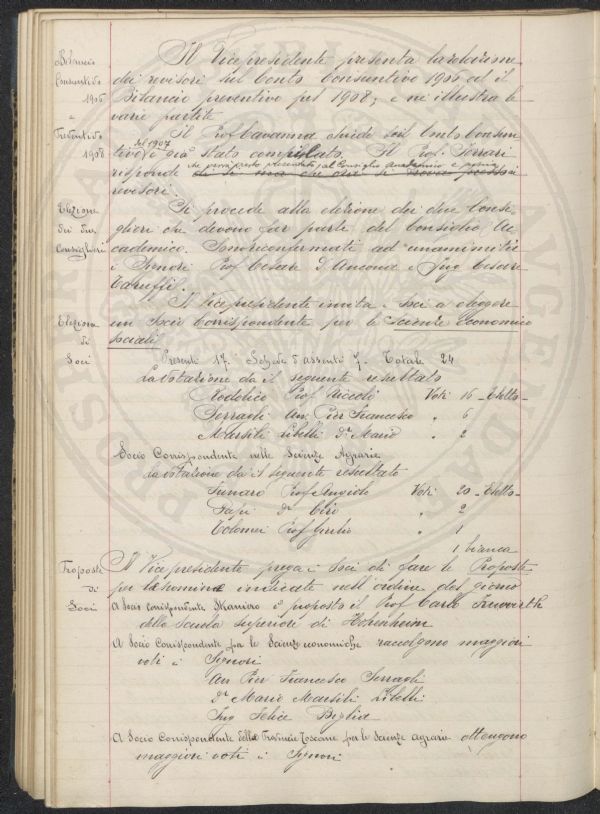 Bilancio
Consuntivo
1906
e
Preventivo
1908
Il Vicepresidente presenta la relazione
dei revisori sul Conto Consuntivo 1906 ed il
Bilancio preventivo pel 1908, e ne illustra le
varie partite.
Il Prof Cavanna chiede sul Conto Consun
tivo del 1907 è già stato compilato. Il Prof. Ferrari
risponde che verrà presto presentato al Consiglio Accademico e poi ai
revisori.
Elezione
dei due
Consiglieri
Si procede alla elezione dei due Consi-
glieri che devono far parte del Consiglio Ac
cademico. Sono riconfermati ad unanimità
i Signori Prof Cesare D'Ancona e Ing Cesare
Taruffi.
Elezione
di
Soci
Il Vicepresidente invita i soci a eleggere
un Socio Corrispondente per le Scienze Economico
sociali
Presenti 17. Schede d'assenti 7. Totale 24
La votazione dà il seguente resultato
Rodolico Prof Niccolò Voti 16 - Eletto -
Serragli Avv. Pier Francesco " 6
Marsili Libelli Dr Mario " 2
Socio Corrispondente nelle Scienze Agrarie
La votazione dà il seguente resultato
Funaro Prof Angiolo Voti 20 - Eletto -
Papi Dr Ciro " 2
Tolomei Prof Giulio " 1
1 bianca
Proposte
di
Soci
Il Vicepresidente prega i Soci di fare le Proposte
per le nomine indicate nell'ordine del giorno
A Socio corrispondente straniero è proposto il Prof Carlo Fruwirth
della Scuola superiore di Hohenheim
A Socio Corrispondente per le Scienze economiche raccolgono maggiori
voti i Signori
Avv Pier Francesco Serragli
Dr Mario Marsili Libelli
Ing Felice Biglia
A Socio Corrispondente delle Provincie Toscane per le Scienze Agrarie ottengono
maggiori voti i Signori